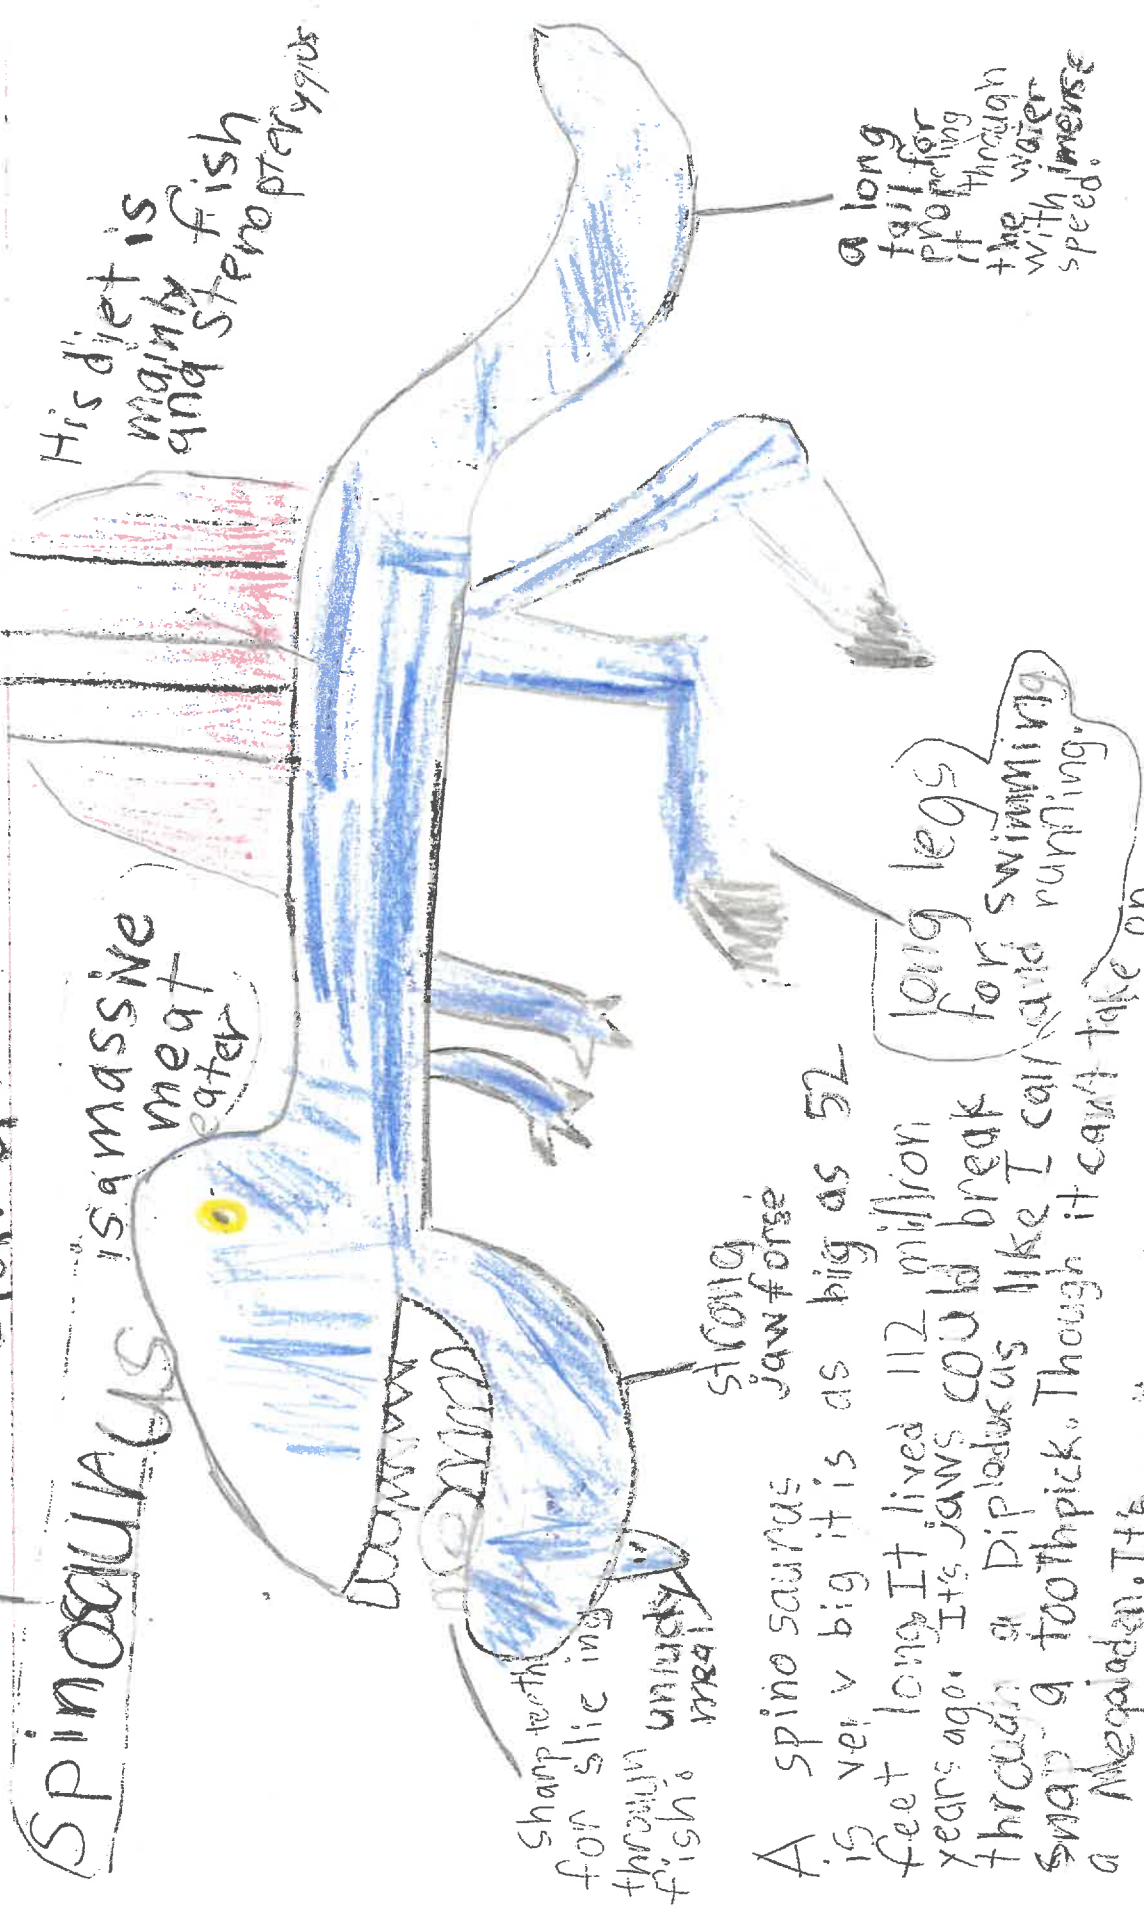 Spinosaurus
is a massive
meat
eater
His diet is
mainly fish
and steropterygius
a long
tail for
propelling
it through
the water
with imense
speed.
long legs
for swimming
and running.
strong
jaw forse
sharp teeth
for slic ing
through
fish.
unlucky
meal
A spinosaurus
is very big it is as big as 52
feet long. It lived 112 million
years ago. It's jaws could break
through a Diploducus like I can
snap a toothpick. Though it can't take on
a Megaladon. Its